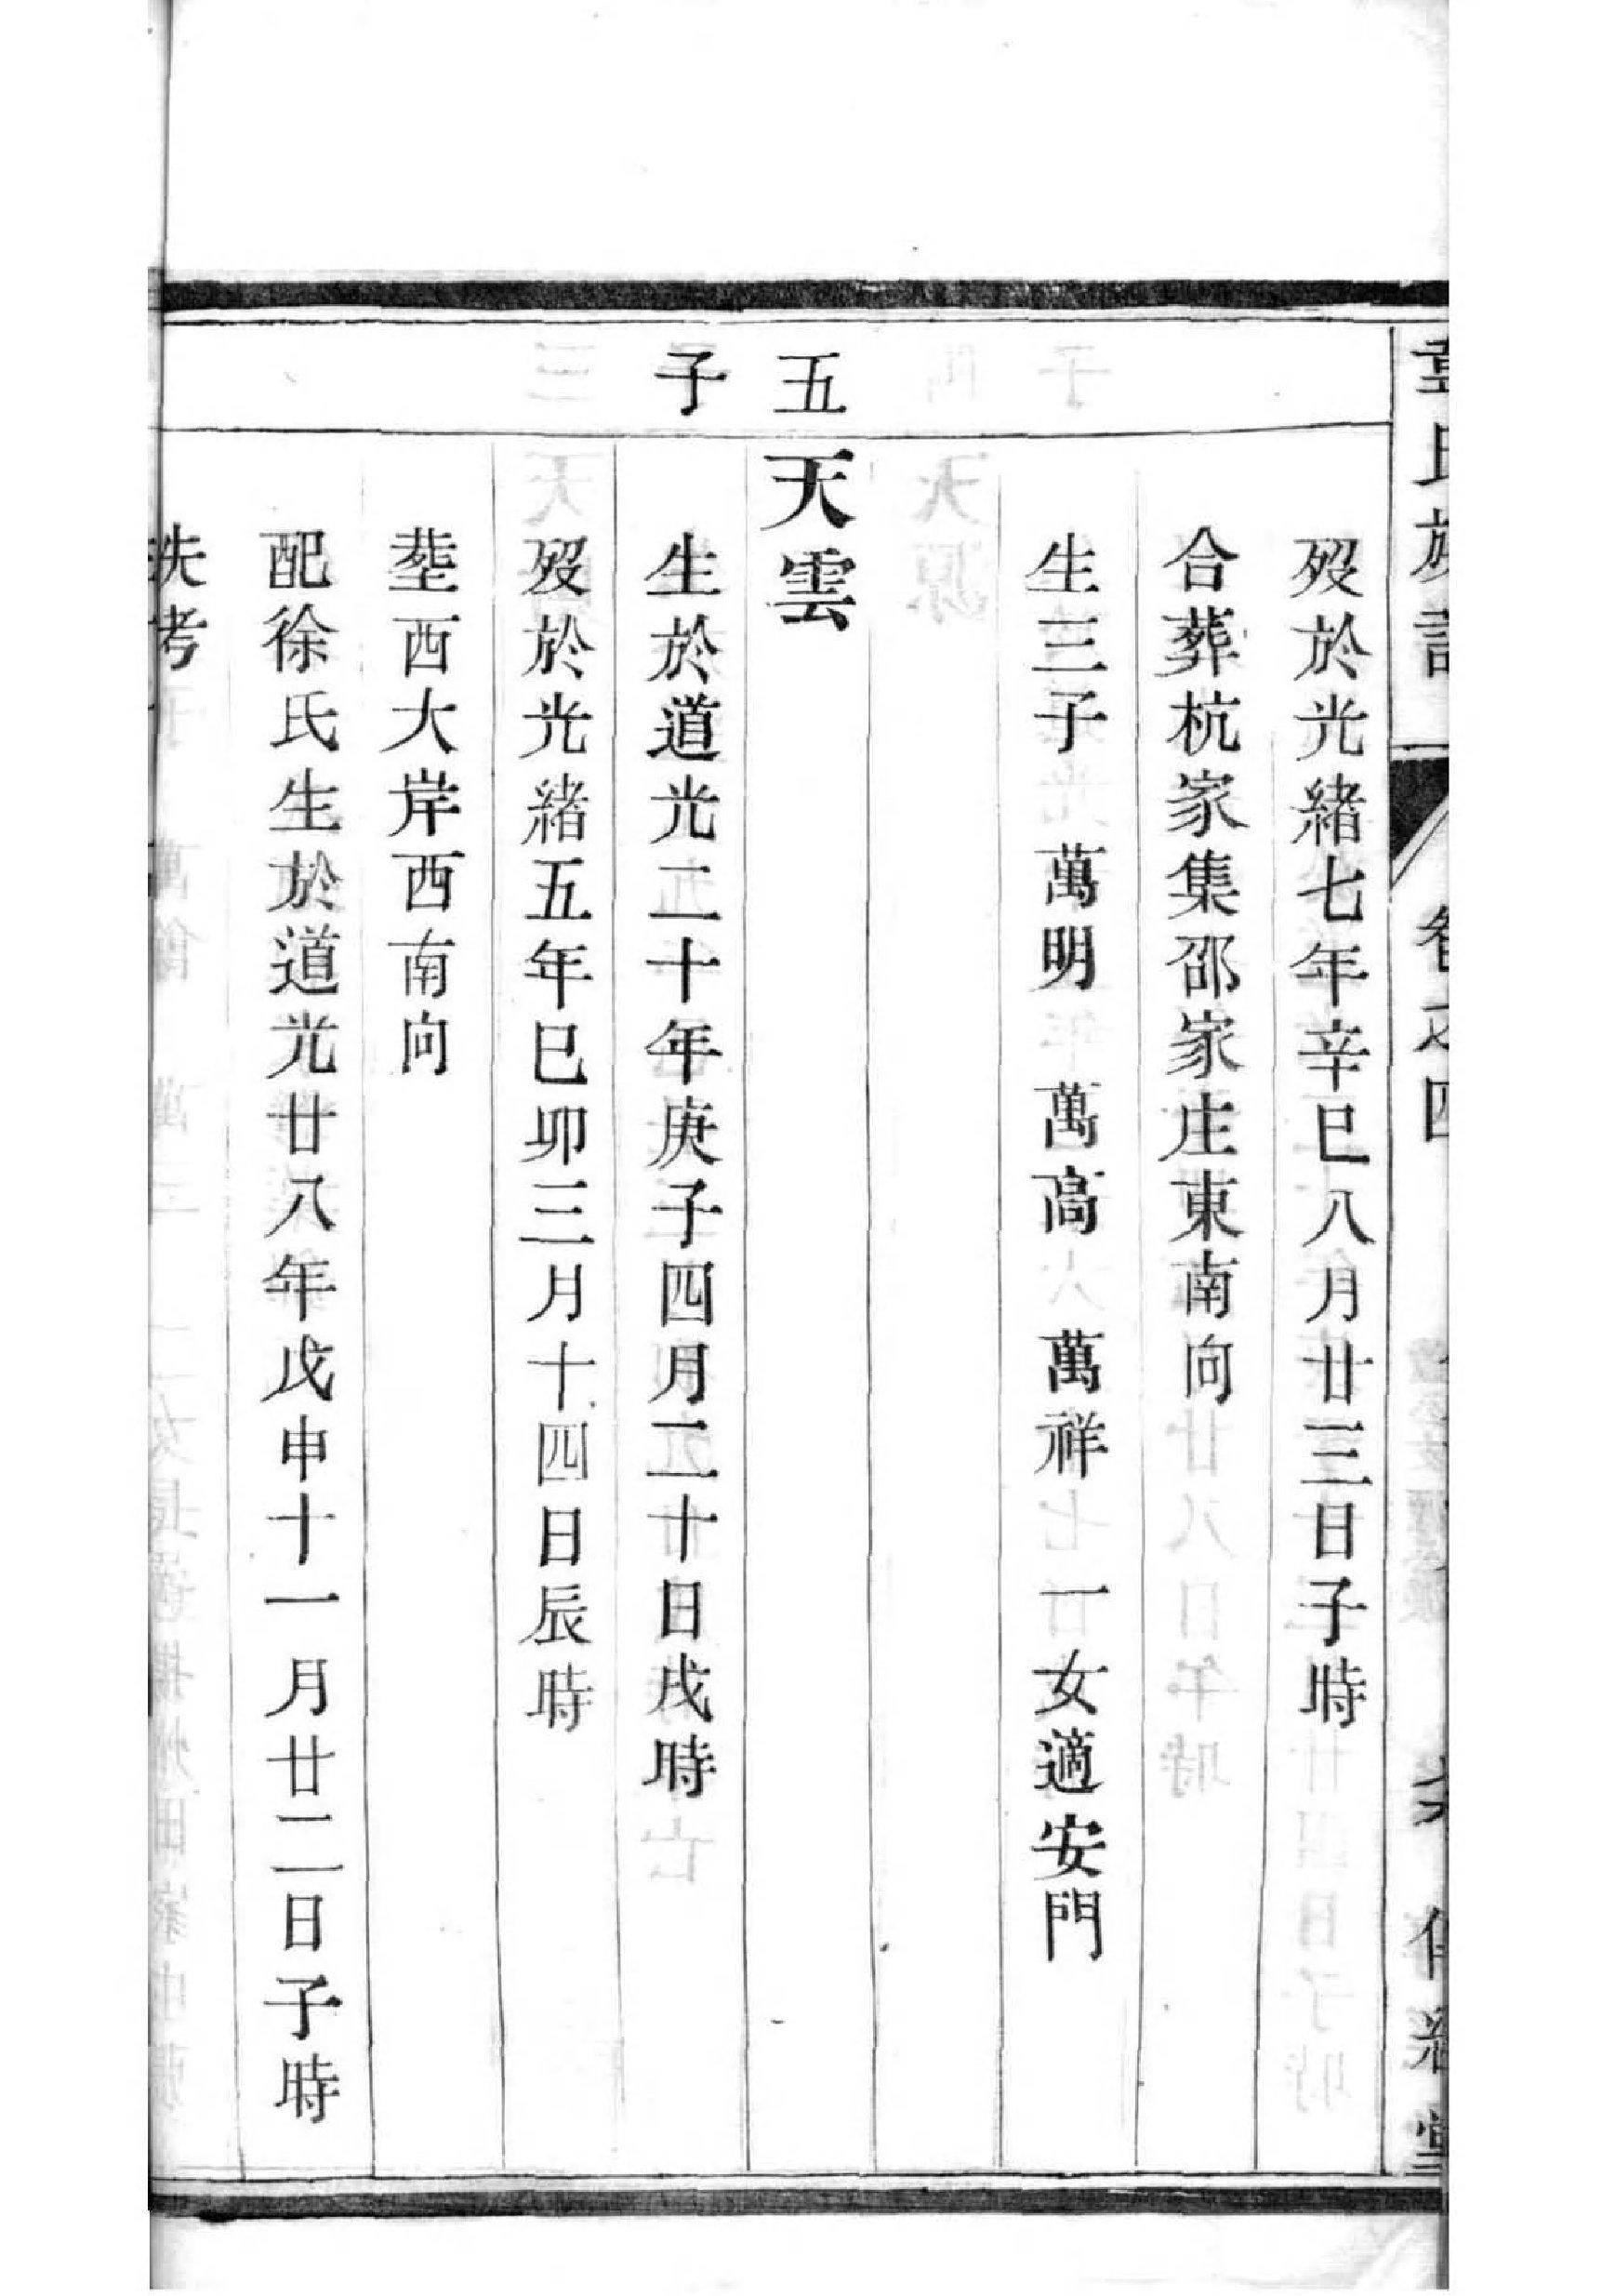 歿於光緒七年辛巳八月廿三日子時
合葬杭家集邵家庄東南向
生三子 萬明 萬高 萬祥 一女適安門
五子
天雲
生於道光二十年庚子四月二十日戌時
歿於光緒五年巳卯三月十四日辰時
塟西大岸西南向
配徐氏生於道光廿八年戊申十一月廿二日子時
失考